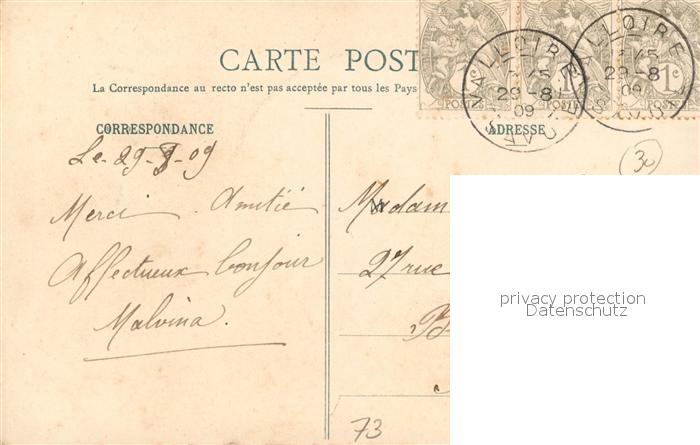 CARTE POST
La Correspondance au recto n'est pas acceptée par tous les Pays
CORRESPONDANCE
ADRESSE
VALLOIRE
29-8
09
SAVOIE
VALLOIRE
29-8
09
1c
POSTES
Le 29-8-09
Merci. Amitié
Affectueux bonjour
Malvina.
Madam
27 rue
30
73
privacy protection
Datenschutz